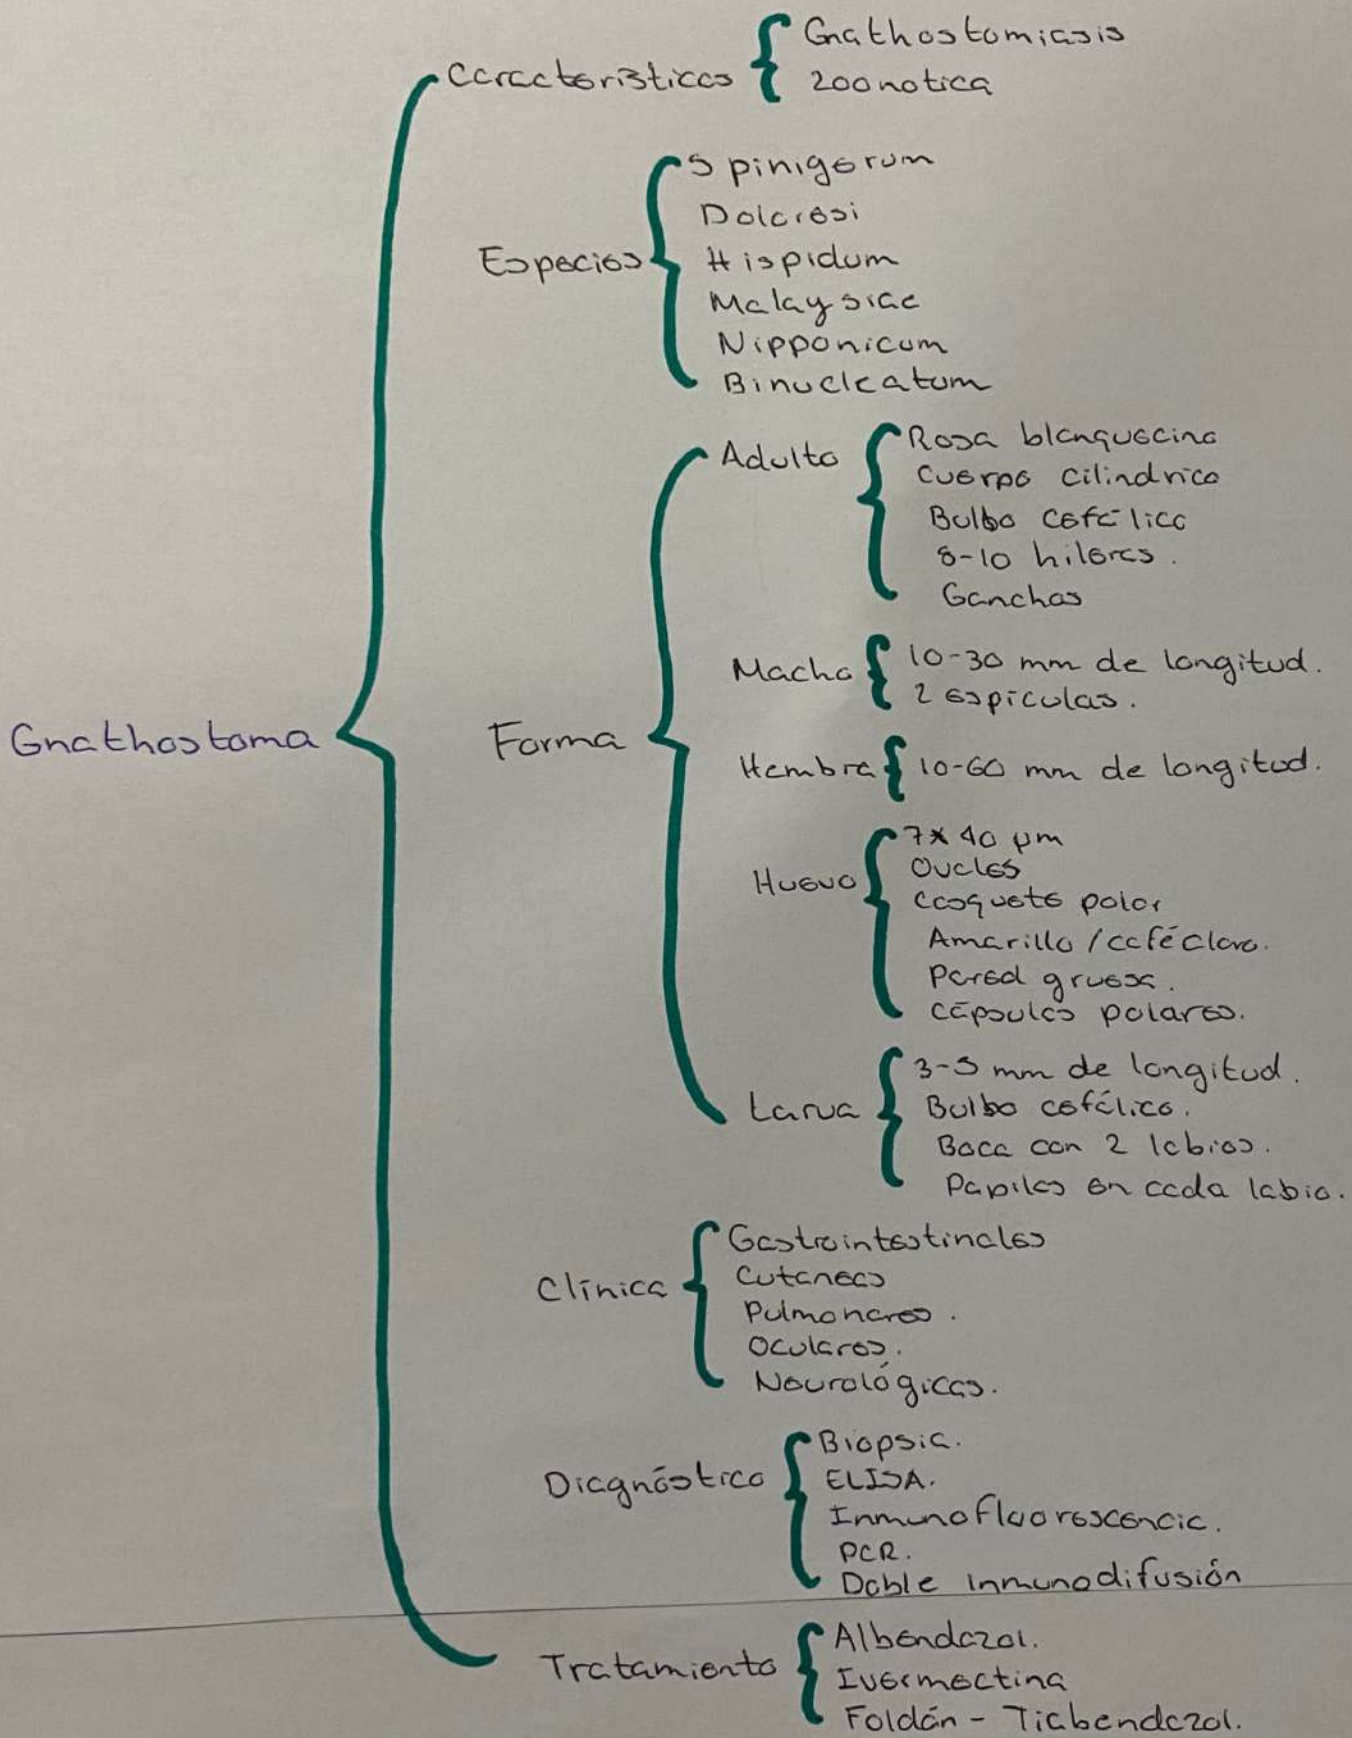 Gnathostoma
Características
Gnathostomiasis
zoonotica
Especies
Spinigerum
Doloresi
Hispidum
Malaysiae
Nipponicum
Binucleatum
Forma
Adulto
Rosa blanquecino
Cuerpo cilindrico
Bulbo cefálico
8-10 hileras.
Ganchos
Macho
10-30 mm de longitud.
2 espiculas.
Hembra
10-60 mm de longitud.
Huevo
7x40 μm
Ovales
Casquete polar
Amarillo / café claro.
Pared gruesa.
Cápsulas polares.
Larva
3-5 mm de longitud.
Bulbo cefálico.
Boca con 2 labios.
Papilas en cada labio.
Clínica
Gastrointestinales
Cutaneas
Pulmonares.
Oculares.
Neurológicas.
Diagnóstico
Biopsia.
ELISA.
Inmunofluorescencia.
PCR.
Doble inmunodifusión
Tratamiento
Albendazol.
Ivermectina
Foldán - Tiabendazol.